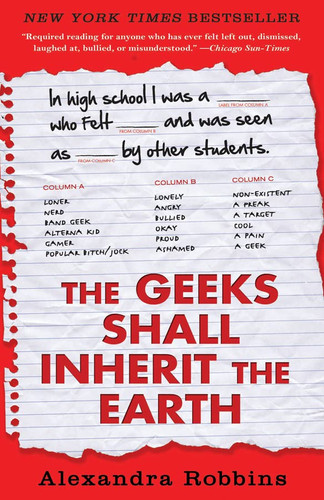 NEW YORK TIMES BESTSELLER
"Required reading for anyone who has ever felt left out, dismissed,
laughed at, bullied, or misunderstood." —Chicago Sun-Times
In high school I was a
LABEL FROM COLUMN A
who felt _____ and was seen
FROM COLUMN B
as _____ by other students.
FROM COLUMN C
COLUMN A COLUMN B COLUMN C
LONER LONELY NON-EXISTENT
NERD ANGRY A FREAK
BAND GEEK BULLIED A TARGET
ALTERNA KID OKAY COOL
GAMER PROUD A PAIN
POPULAR BITCH/JOCK ASHAMED A GEEK
THE GEEKS
SHALL
INHERIT THE
EARTH
Alexandra Robbins